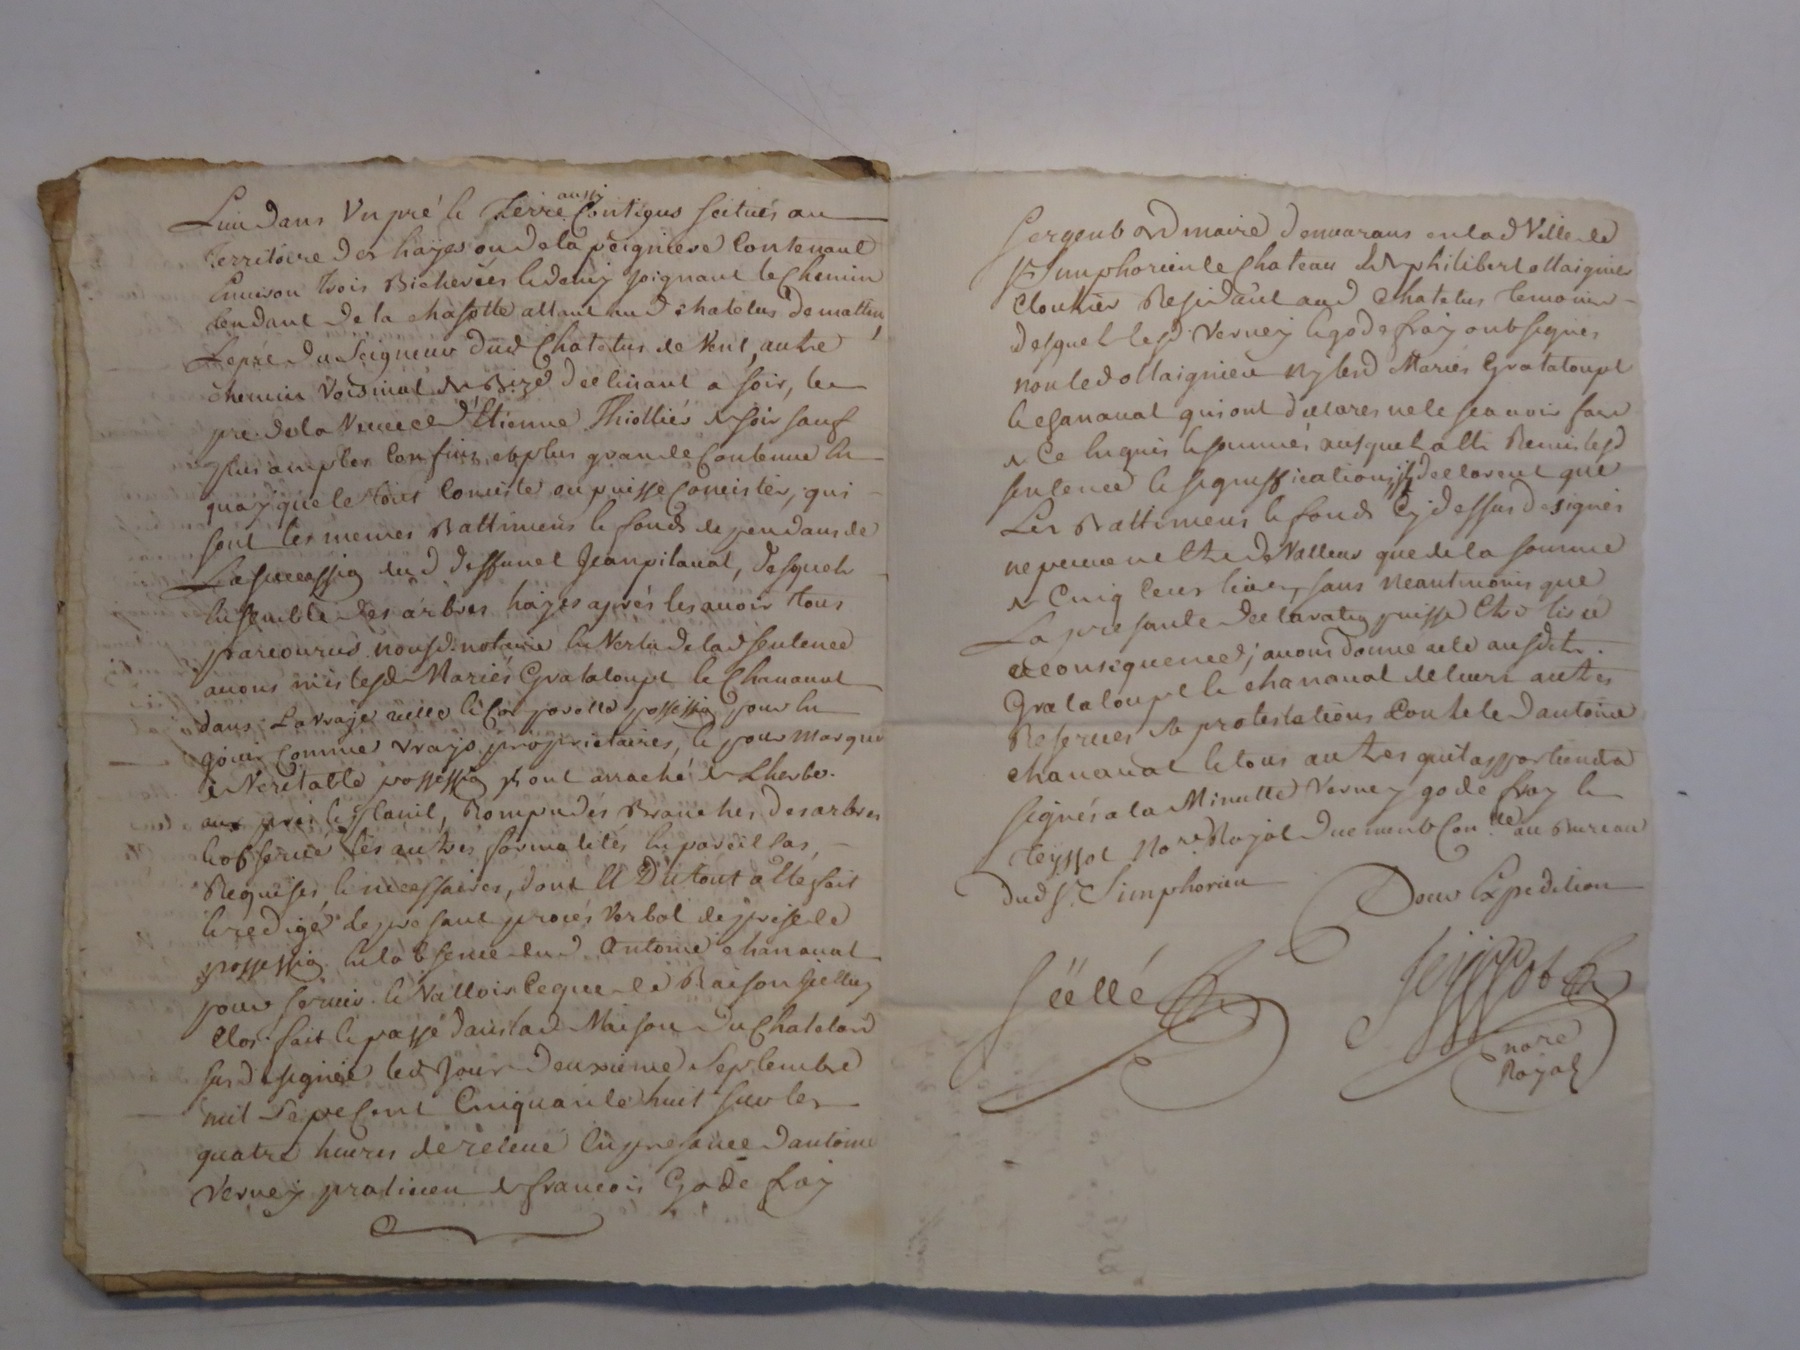 Luin dans Un pré & Terre aussi Contigus scitués au
territoire des hayes ou de la peigniere Contenant
Environ trois Bicherées & demy joignant le Chemin
tendant de la chasotte allant aud chatelus de mattin,
Le pré du Seigneur dud Chatelus de Vent, autre
chemin Voisinal de Bize declinant a soir, le
pré de la Veuve d'Etienne Thiollier de soir sauf
plus amples Confins et plus grande Contenue En
quoy que le tout Consiste ou puisse Consister, qui
sont les memes Battimens & fonds dependans de
La succession dud deffunct Jean pitaval, desquels
Ensemble des arbres hayes aprés les avoir tous
parcourus nousd. notaire En Vertu de lad sentence
avons mis lesd Mariés Grataloupt & Chanavat
dans La vraye reelle & Corporelle possession pour En
jouir Comme vrays proprietaires, & pour marque
de Veritable possession Ils ont arraché de L'herbe
aux prés, Rompu des Branches des arbres
& observé les autres formalités En pareil Cas,
Requises & necessaires, dont Et Du tout a Eté fait
& redigé le present procés Verbal de prise de
possession En l'absence dud Antoine chanavat
pour servir & Valloir Ce que de Raison
Clos fait & passé dans lad Maison du Chatelard
susdesignée led Jour deuxieme Septembre
mil Sept Cent Cinquante huit sur les
quatre heures de relevé En presence d'antoine
Verney praticien & françois Godefray
Sergent ordinaire demeurans en lad Ville de
St Simphorien le Chateau & de philibert ollaignier
Cloutier Residant aud Chatelus temoins
desquels lesd Verney & godefray ont signés
non led ollaignier Ny lesd Mariés Grataloupt
& Chanavat qui ont declarés ne le sçavoir faire
de Ce Enquis & sommés ausquels a Eté Remis lesd
sentence & significations, declarent que
Les Battimens & fonds Cy dessus designés
ne peuvent Etre de Valleur que de la somme
de Cinq Cens livres, sans Neantmoins que
La presente declaration puisse Etre tirée
a consequence; avons donné acte ausdits
Grataloupt & chanavat de leurs autres
Reserves & protestations Contre led antoine
chanavat & tous autres qu'il appartiendra
signés a la Minutte Verney godefray &
Teyssot No.re Royal duement Con.lle au Bureau
dud St. Simphorien
Pour Expedition
Sëellé
Teyssot
no.re
Royal